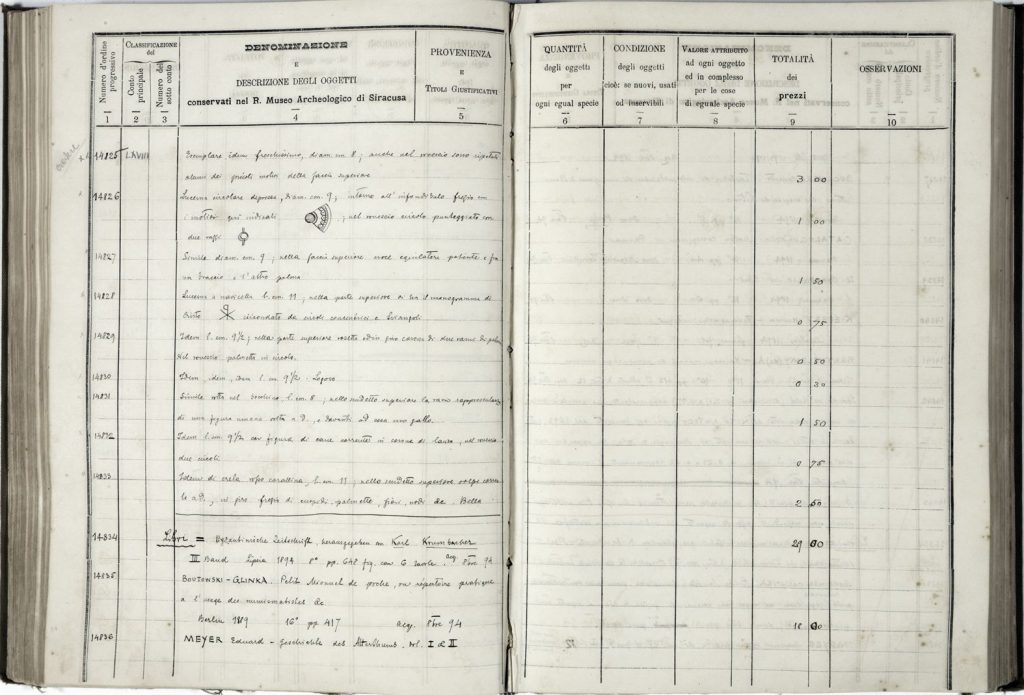 Numero d'ordine progressivo
CLASSIFICAZIONE del
Conto principale
Numero del sotto conto
DENOMINAZIONE
E
DESCRIZIONE DEGLI OGGETTI
conservati nel R. Museo Archeologico di Siracusa
PROVENIENZA
E
TITOLI GIUSTIFICATIVI
1 2 3 4 5
14825 LXVIII Esemplare idem freschissimo, diam. cm 8; anche nel rovescio sono ripetuti
alcuni dei piccoli motivi della faccia superiore
14826 Lucerna circolare depressa, diam. cm. 9; intorno all' infondibulo fregio con
i motivi qui indicati ; nel rovescio circolo punteggiato con
due raggi
14827 Simile diam. cm. 9; nella faccia superiore
un braccio e l'altro palma
14828 Lucerna a navicella l. cm. 11; nella parte superiore di essa il monogramma di
Cristo circondato da circoli concentrici e triangoli
14829 Idem l. cm. 9½; nella parte superiore rosetta di due rami di palma
Nel rovescio palmetta in circolo.
14830 Idem, idem, idem l. cm 9½. Logoro
14831 Simile rotta nel l. cm. 8; nello scudetto superiore
di una figura umana volta a D., e davanti ad essa uno gallo.
14832 Idem l. cm. 9½ con figura di cane corrente in corona di lauro, nel rovescio
due circoli
14833 Idem di creta rosso corallina, l. cm. 11; nello scudetto superiore volpe corren-
te a D., in giro fregio di cuoricini, palmette, fiori, nodi &c. Bella
14834 Libri = Byzantinische Zeitschrift, herausgegeben von Karl Krumbacher
III Band Lipsia 1894 8° pp. 648 fig. con 6 tavole. acq. 8bre 94
14835 BOUTKOWSKI-GLINKA. Petit Mionnet de poche, ou répertoire pratique
à l'usage des numismatistes &c.
Berlin 1889 16° pp. 417 acq. 8bre 94
14836 MEYER Eduard - Geschichte des Alterthums. vol. I e II
QUANTITÀ
degli oggetti
per
ogni egual specie
CONDIZIONE
degli oggetti
cioè: se nuovi, usati
od inservibili
VALORE ATTRIBUITO
ad ogni oggetto
ed in complesso
per le cose
di eguale specie
TOTALITÀ
dei
prezzi
OSSERVAZIONI
6 7 8 9 10
3 00
1 00
1 50
0 75
0 50
0 30
1 50
0 75
2 50
29 00
18 00
12